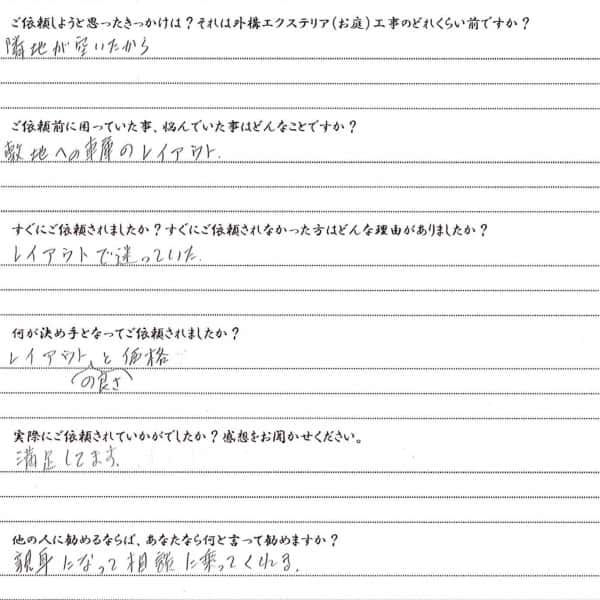 ご依頼しようと思ったきっかけは？それは外構エクステリア（お庭）工事のどれくらい前ですか？
隣地が空いたから
ご依頼前に困っていた事、悩んでいた事はどんなことですか？
敷地への車庫のレイアウト.
すぐにご依頼されましたか？すぐにご依頼されなかった方はどんな理由がありましたか？
レイアウトで迷っていた.
何が決め手となってご依頼されましたか？
レイアウトと価格
の良さ
実際にご依頼されていかがでしたか？感想をお聞かせください。
満足してます.
他の人に勧めるならば、あなたなら何と言って勧めますか？
親身になって相談に乗ってくれる.